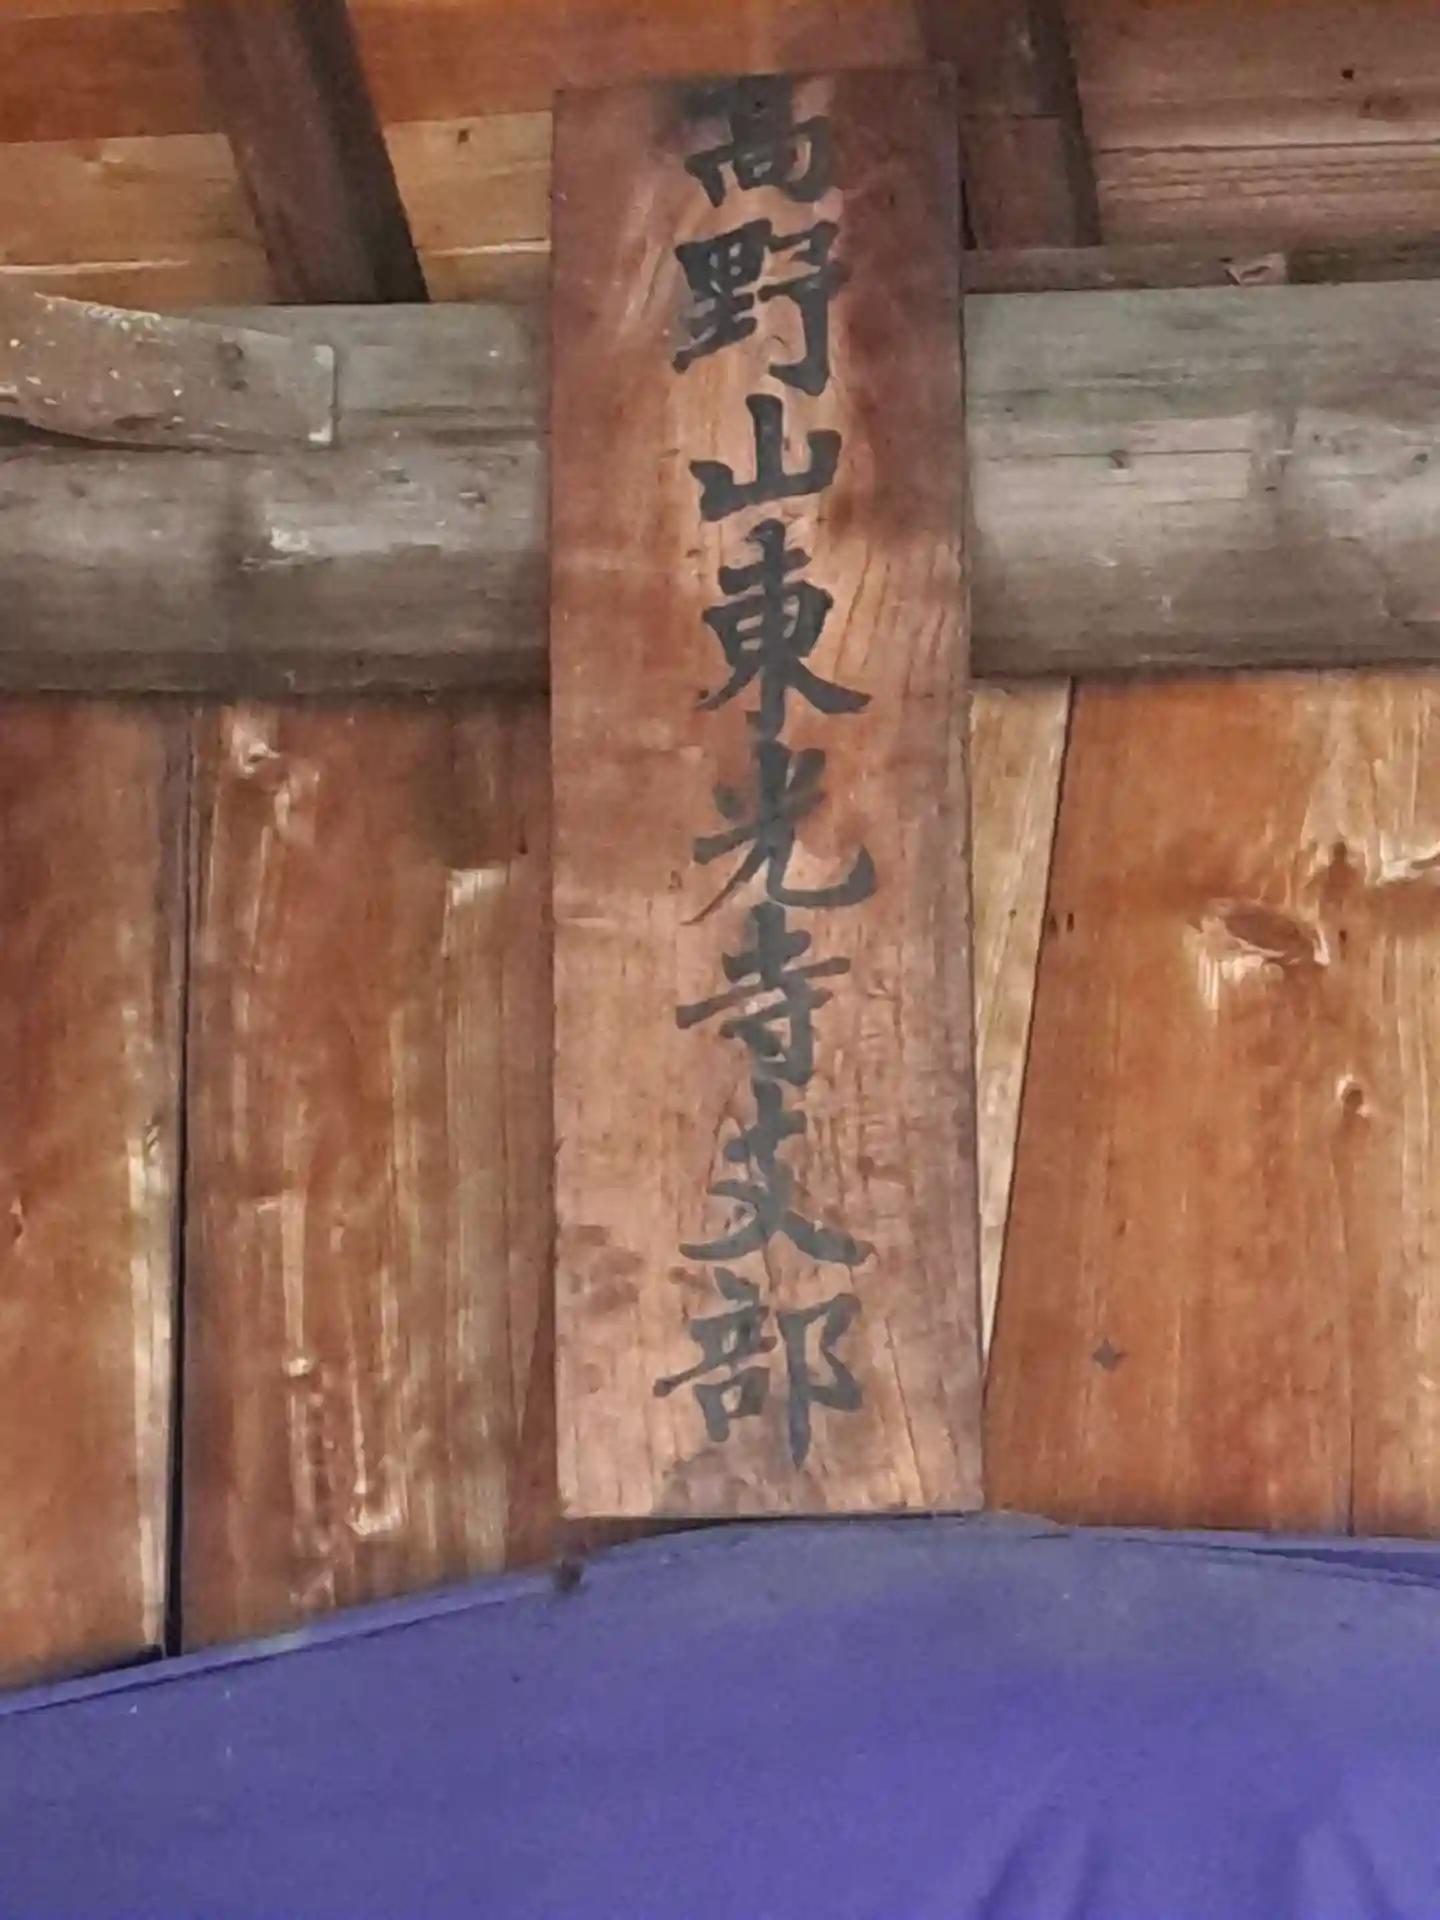 高野山東光寺支部